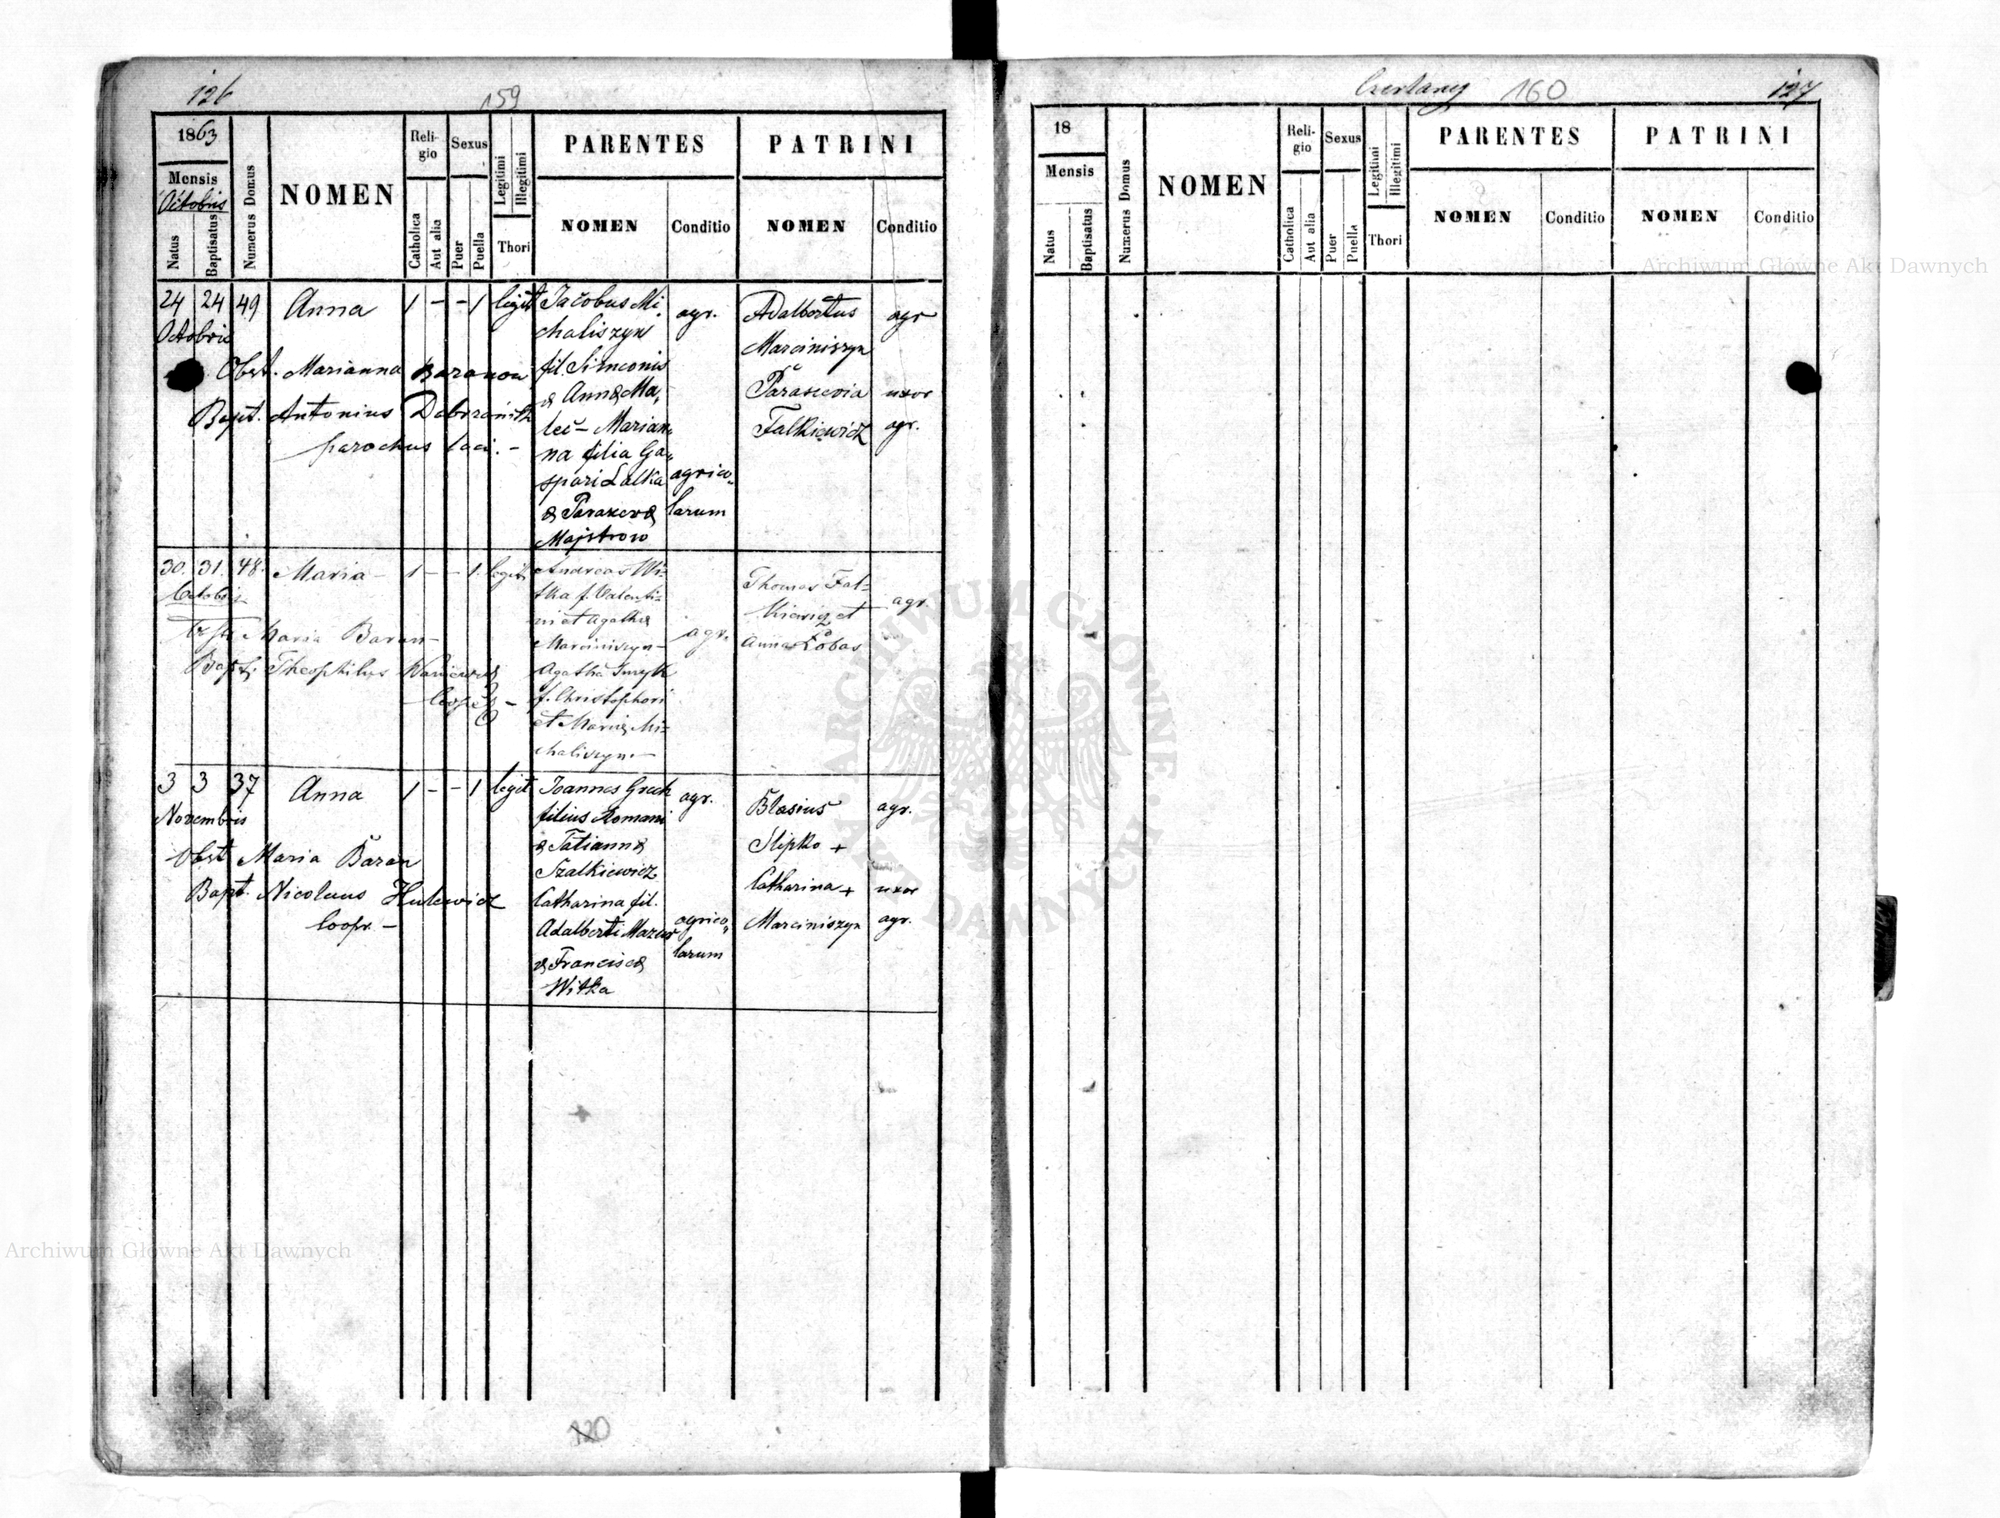 126
159
1863
Mensis
Octobris
Natus
Baptisatus
Numerus Domus
NOMEN
Reli-
gio
Catholica
Aut alia
Sexus
Puer
Puella
Legitimi
Illegitimi
Thori
PARENTES
NOMEN
Conditio
PATRINI
NOMEN
Conditio
24 24 49 Anna 1 - - 1 legit
Octobris
Obst. Marianna Baranow
Bapt. Antonius
parochus loci. -
Jacobus Mi
chaliszyn
fil. Simeonis
& Annæ Ma,
leć - Marian,
na filia Ga,
spari Lalka
& Paraxevæ
Majstrow
agr.
agrico,
larum
Adalbertus
Marciniszyn
Paraxevia
Falkiewicz
agr
uxor
agr.
30. 31. 48. Maria - 1 - - 1. legit.
Octobris
Obstr. Maria Baran -
Bapt. Theophilus
Coop.
Andreas Wi-
tka f. Valenti-
ni et Agathæ
Marciniszyn -
Agatha Smyk
f. Christophori
et Mariæ Mi-
chaliszyn -
agr.
Thomas Fal-
kiewicz et
Anna Łobas
agr.
3 3 37 Anna 1 - - 1 legit
Novembris
Obst Maria Baran
Bapt. Nicolaus Hulewicz
Coopr. -
Joannes Grech
filius Romani
& Tatiannæ
Szalkiewicz
Catharina fil.
Adalberti Mazur
& Franciscæ
Witka
agr.
agrico,
larum
Blasius
Slipko +
Catharina +
Marciniszyn
agr.
uxor
agr.
120
Czerlany 160 127
18
Mensis
Natus
Baptisatus
Numerus Domus
NOMEN
Reli-
gio
Catholica
Aut alia
Sexus
Puer
Puella
Legitimi
Illegitimi
Thori
PARENTES
NOMEN
Conditio
PATRINI
NOMEN
Conditio
Archiwum Główne Akt Dawnych
ARCHIWUM GŁÓWNE AKT DAWNYCH
Archiwum Główne Akt Dawnych